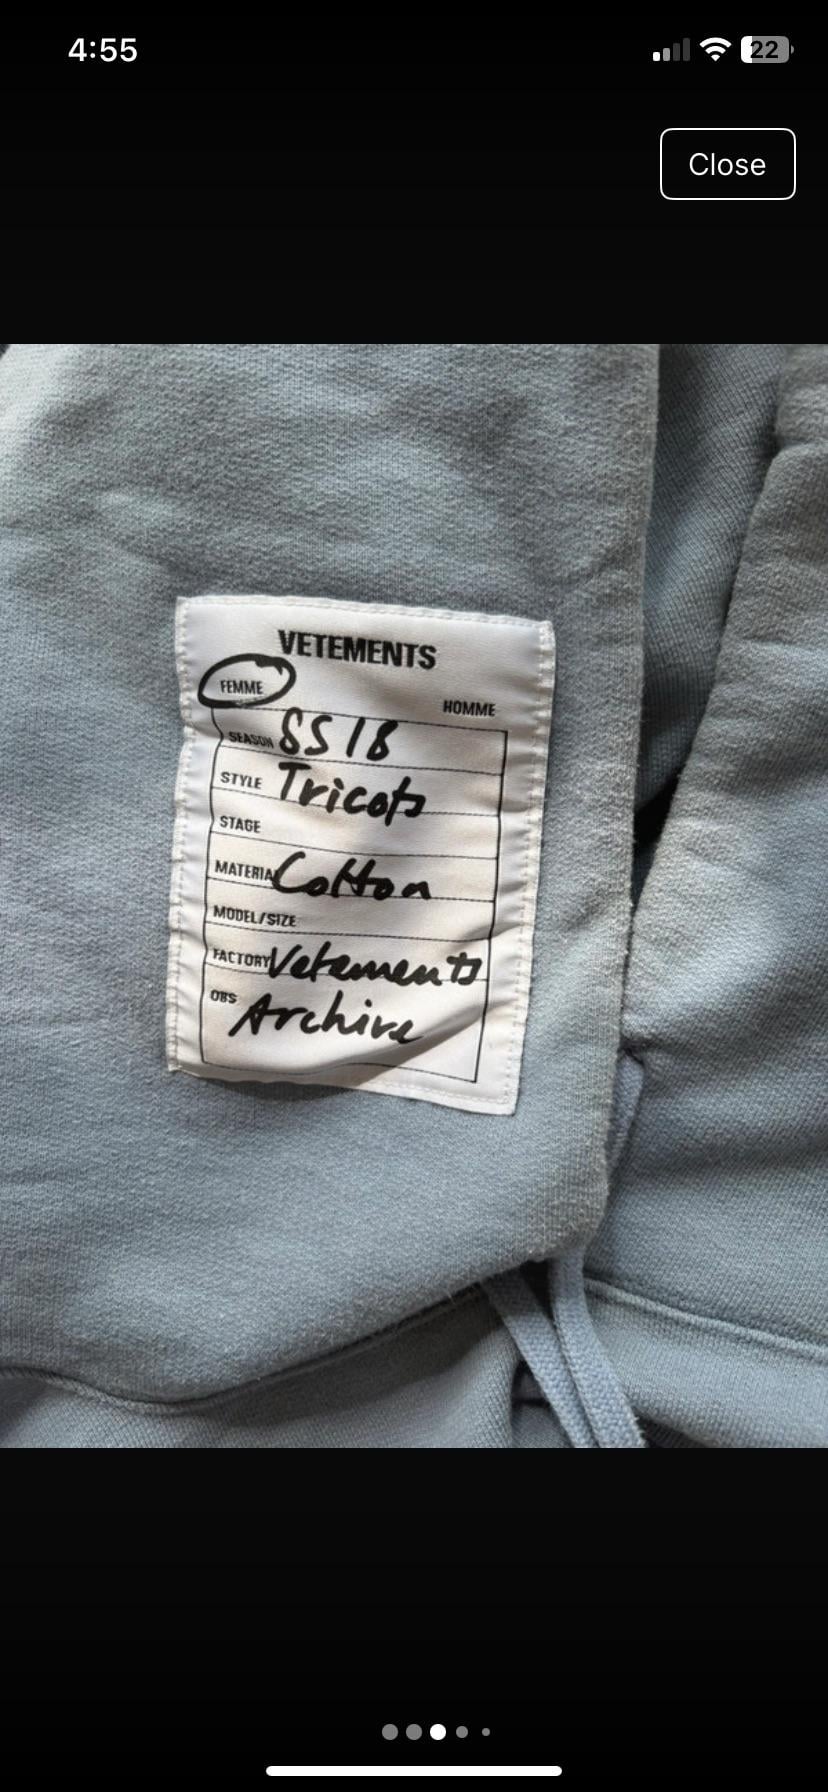 4:55
22
Close
VETEMENTS
FEMME
HOMME
SEASON SS18
STYLE Tricots
STAGE
MATERIAL Cotton
MODEL/SIZE
FACTORY Vetements
OBS Archive